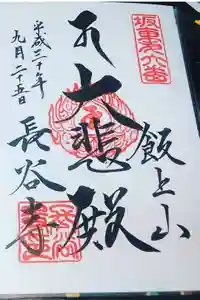 坂東第六番
飯上山
大悲殿
長谷寺
平成三十年
九月二十五日